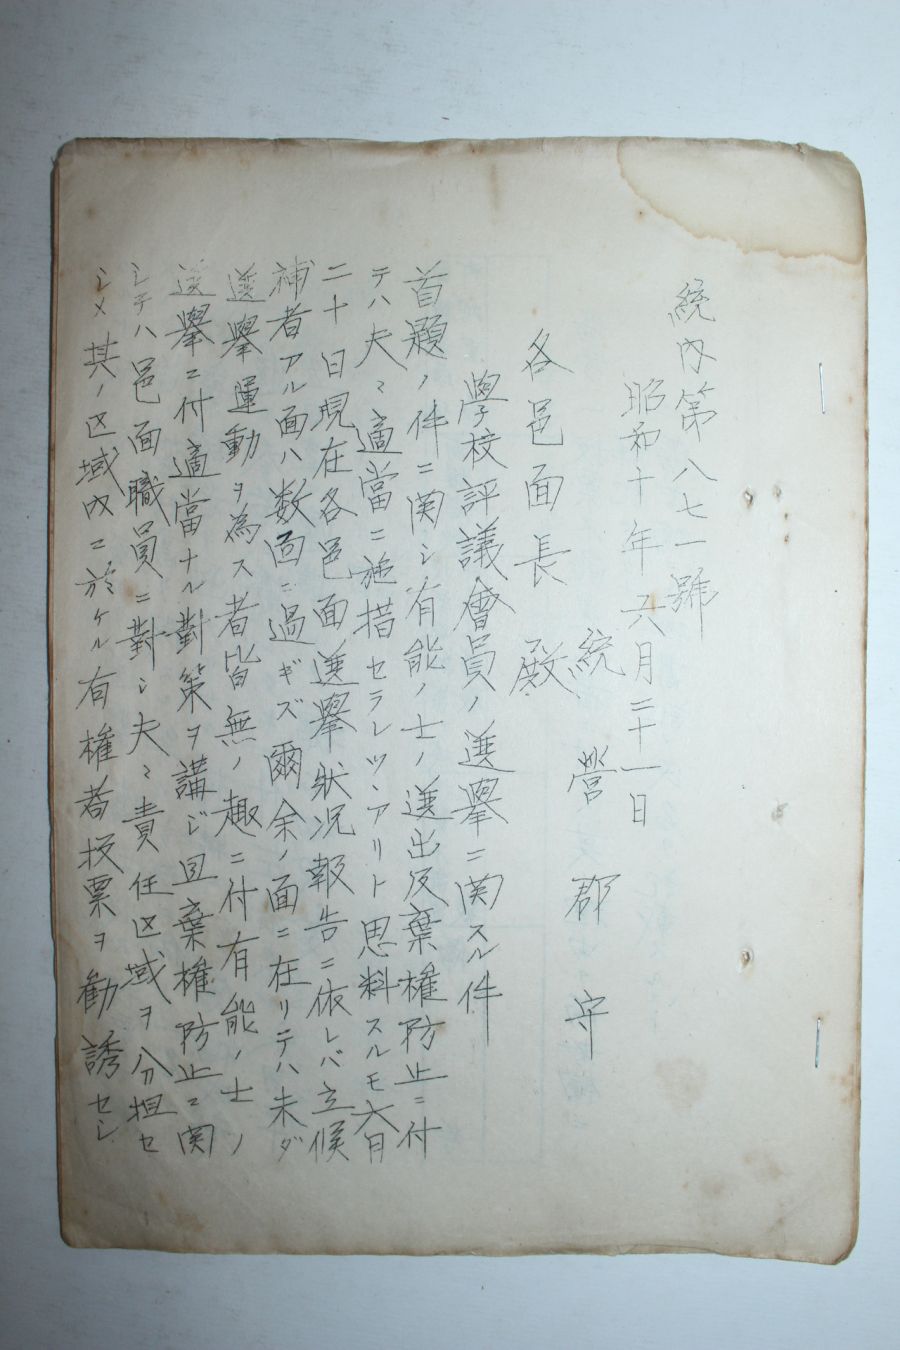 統内第八七一號
昭和十年六月二十一日
統營郡守
各邑面長殿
學校評議會員ノ選擧ニ関スル件
首題ノ件ニ関シ有能ノ士ノ選出及棄權防止ニ付
テハ夫々適當ニ施措セラレツヽアリト思料スルモ六月
二十日現在各邑面選擧狀况報告ニ依レバ立候
補者アル面ハ数面ニ過ギズ爾余ノ面ニ在リテハ未ダ
選擧運動ヲ為ス者皆無ノ趣ニ付有能ノ士ノ
選擧ニ付適當ナル對策ヲ講ジ且棄權防止ニ関
シテハ邑面職員ニ對シ夫々責任区域ヲ分担セ
シメ其ノ区域内ニ於ケル有権者投票ヲ勧誘セシ